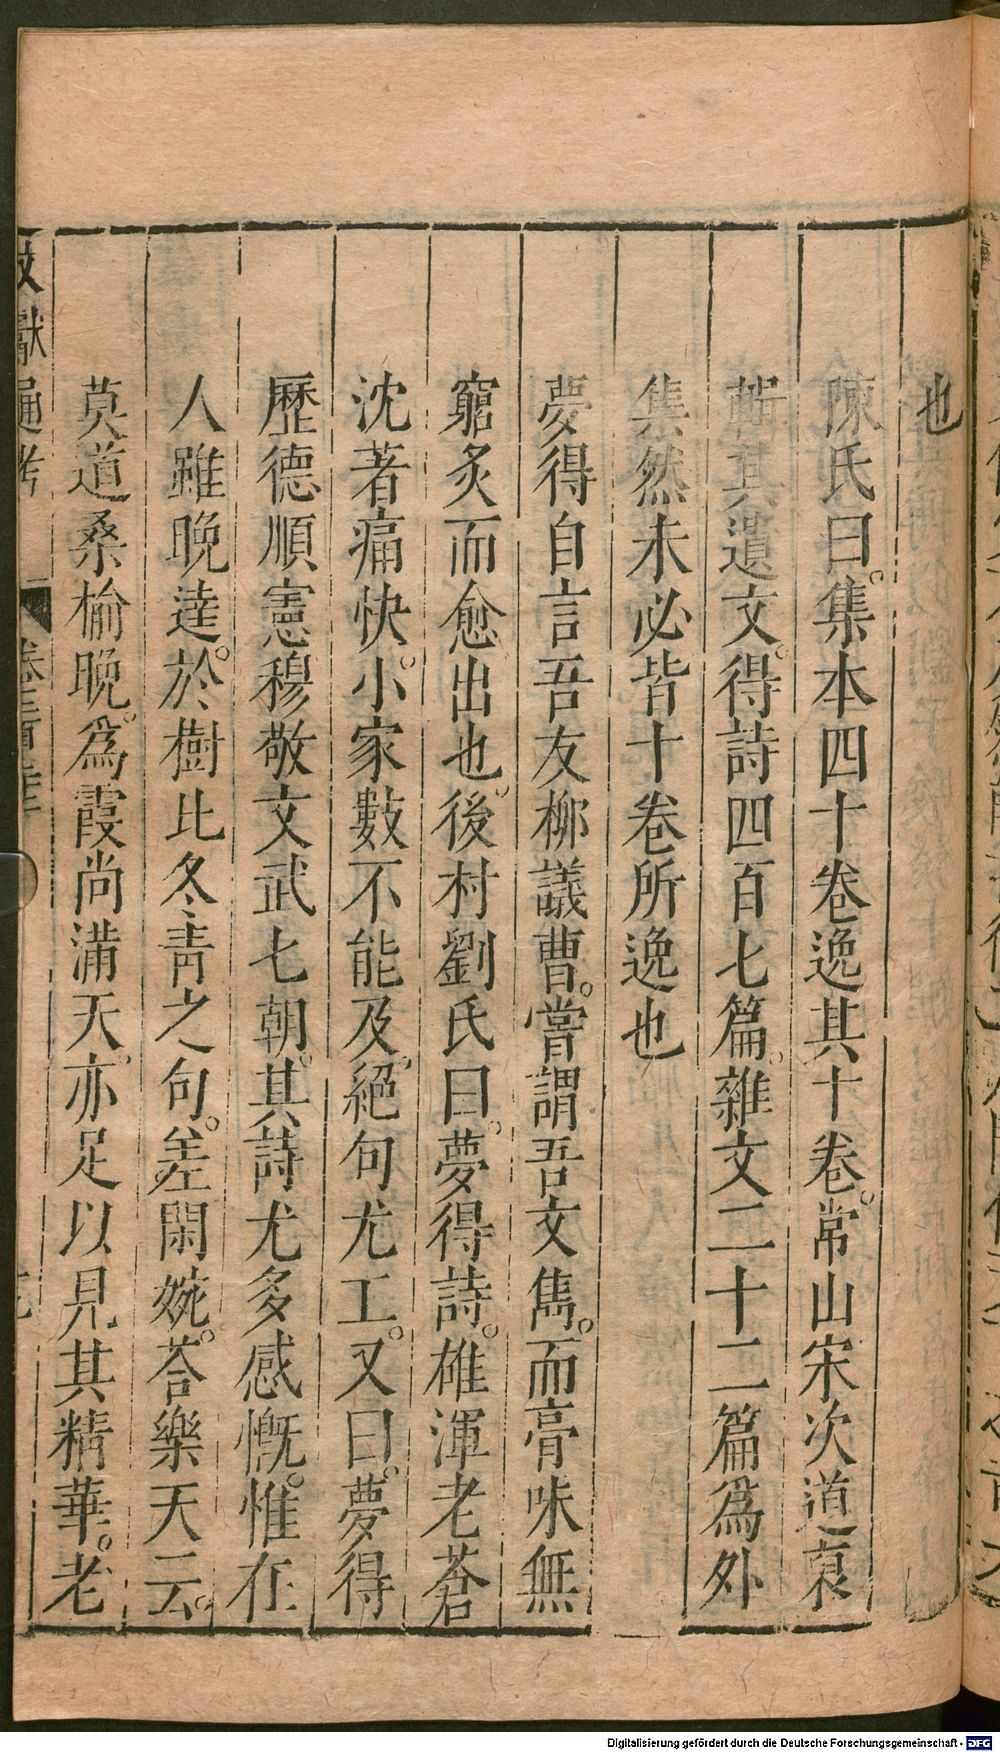 也
陳氏曰。集本四十卷逸其十卷。常山宋次道裒
輯其遺文。得詩四百七篇。雜文二十二篇爲外
集然未必皆十卷所逸也
夢得自言吾友柳議曹。嘗謂吾文雋。而膏味無
窮炙而愈出也。後村劉氏曰。夢得詩。雄渾老蒼
沈著痛快。小家數不能及。絕句尤工。又曰。夢得
歷德順憲穆敬文武七朝。其詩尤多感慨。惟在
人雖晚達。於樹比冬青之句。差閑婉。荅樂天云。
莫道桑榆晚。爲霞尚滿天。亦足以見其精華。老
文獻通考
Digitalisierung gefördert durch die Deutsche Forschungsgemeinschaft - DFG